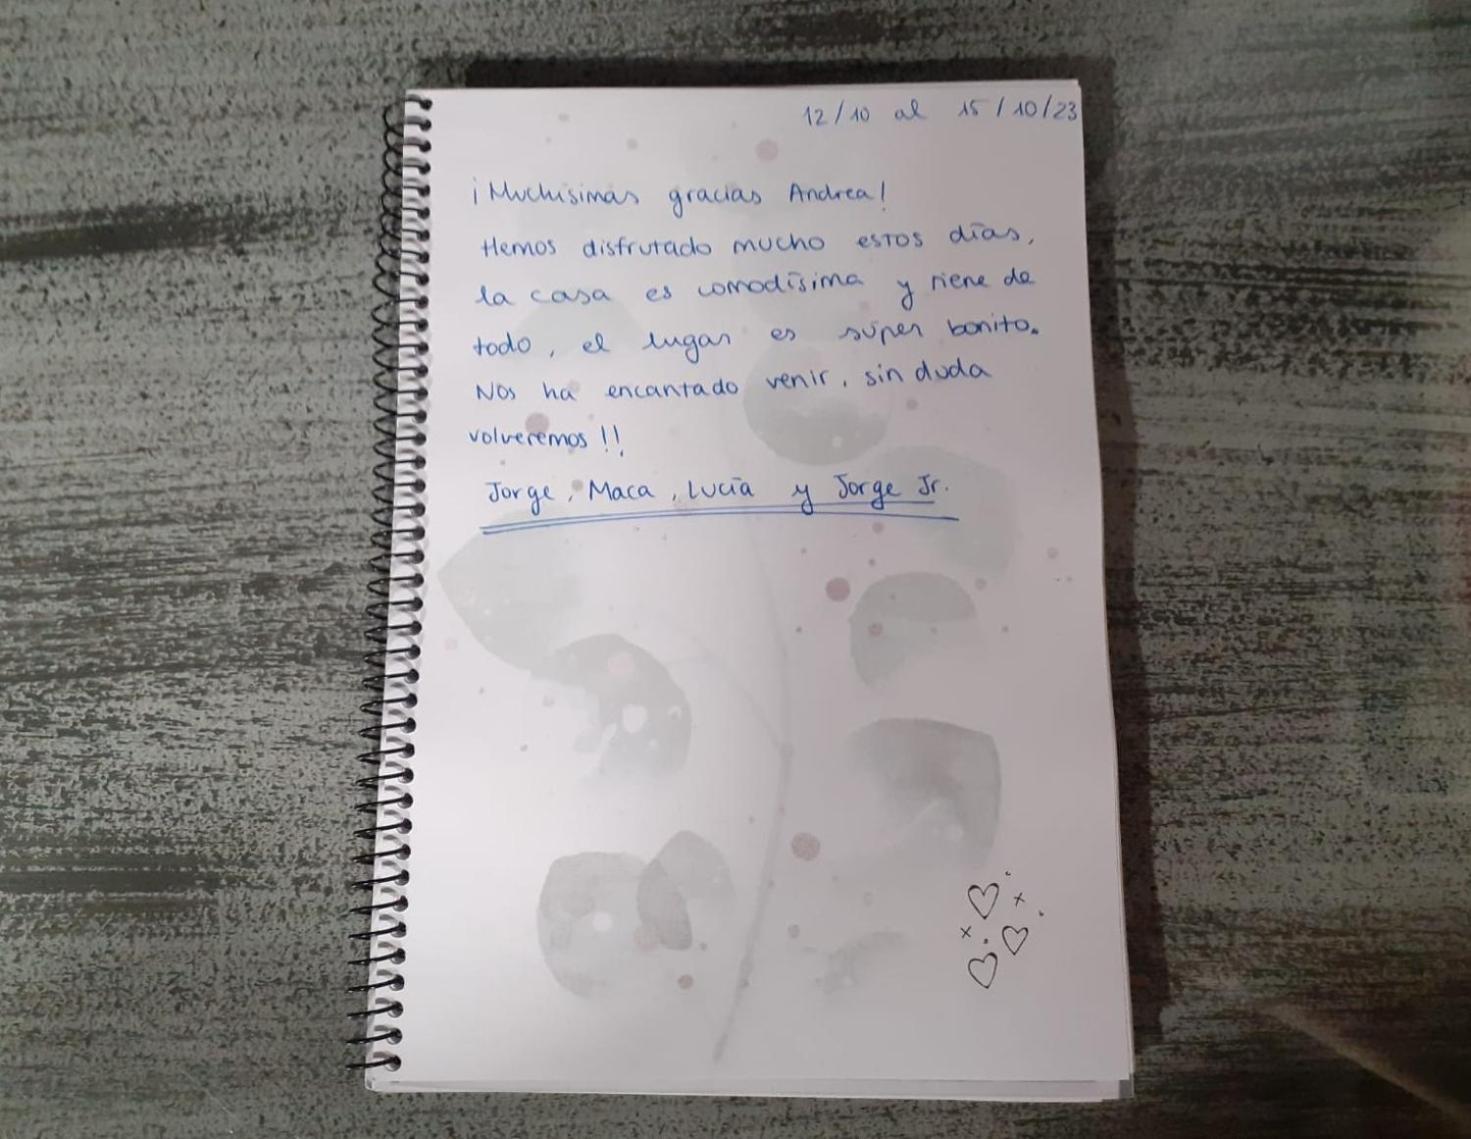 12/10 al 15/10/23
¡Muchísimas gracias Andrea!
Hemos disfrutado mucho estos días,
la casa es comodísima y tiene de
todo, el lugar es súper bonito.
Nos ha encantado venir, sin duda
volveremos!!
Jorge, Maca, Lucía y Jorge Jr.